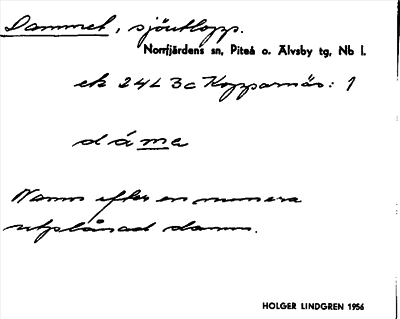 Dammet, sjöutlopp.
Norrfjärdens sn, Piteå o. Älvsby tg, Nb l.
ek 24L 3c Kopparnäs: 1
dáme
Namn efter en numera
utplånad damm.
HOLGER LINDGREN 1956